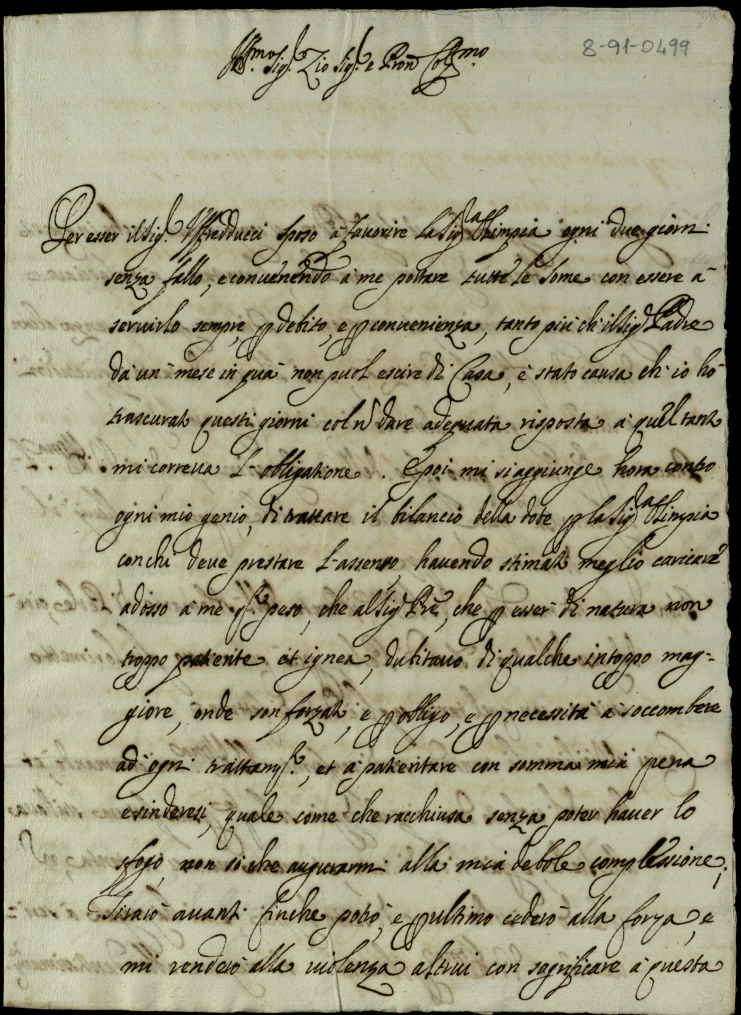 8-91-0499
Ill.mo Sig.r Zio Sig.r e Pron Col.mo
Per esser il Sig.r Uffredducci sposo à favorire la Sig.ra Olimpia ogni due giorni
senza fallo, e convenendo à me portare tutte le some con essere à
servirlo sempre, p debito, e p convenienza, tanto più ch'il Sig.r Padre
da un mese in quà non puol escire di Casa, è stato causa ch'io hò
trascurato questi giorni col nõ dare adeguata risposta à quel tanto
mi correva l'obligatione. E poi mi si aggiunge hora contro
ogni mio genio, di trattare il bilancio della dote p la Sig.ra Olimpia
con chi deve prestare l'assenso, havendo stimato meglio caricare
adosso à me q.to peso, che al Sig.r Pře, che p esser di natura non
troppo patiente et ignea, dubitavo di qualche intoppo mag-
giore, onde son forzato, e p obligo, e p necessità à soccombere
ad ogni, et à patientare con somma mia pena
e sinderesi, quale come che racchiusa senza poter haver lo
sfogo, non sò che augurarmi alla mia debole complessione;
Tirarò avanti finche potrò, e p ultimo cederò alla forza, e
mi renderò alla violenza altrui con sagrificare à questa